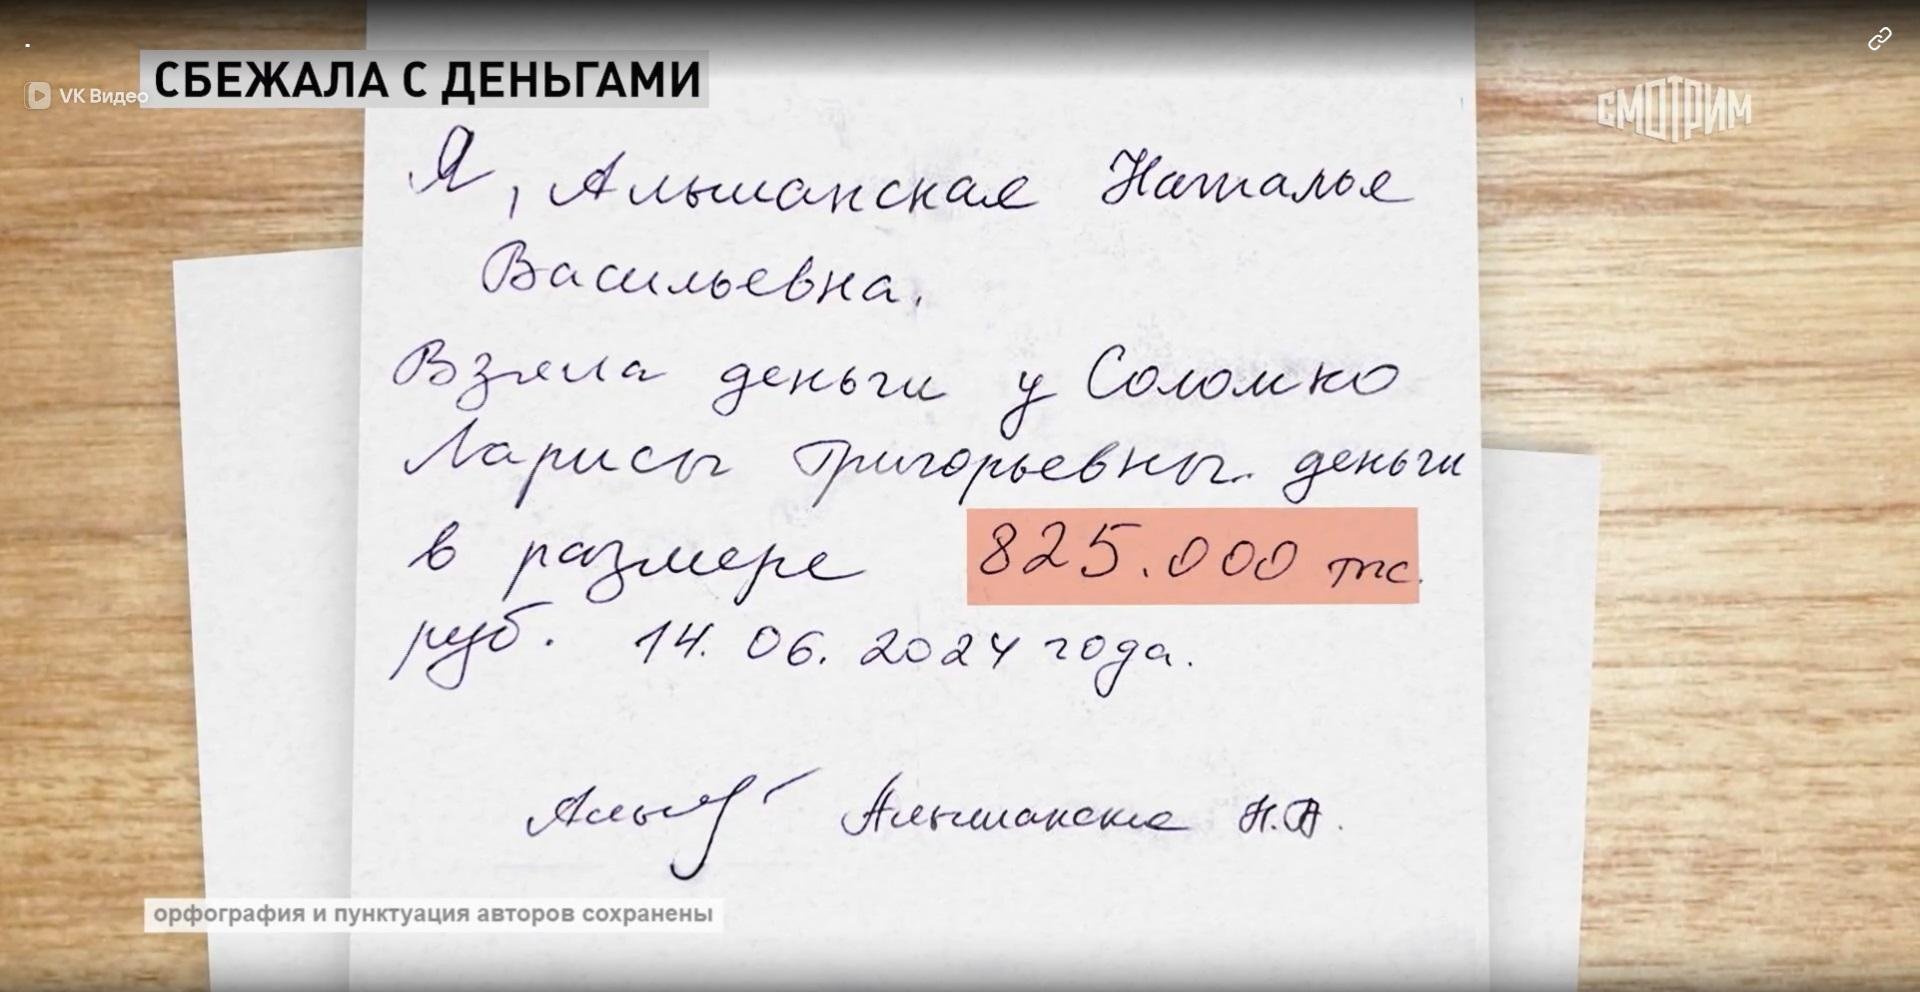 СБЕЖАЛА С ДЕНЬГАМИ
VK Видео
СМОТРИМ
Я, Альшанская Наталья
Васильевна.
Взяла деньги у Соломко
Ларисы Григорьевны. деньги
в размере 825.000 тыс.
руб. 14.06.2024 года.
Альшанская Н.В.
орфография и пунктуация авторов сохранены